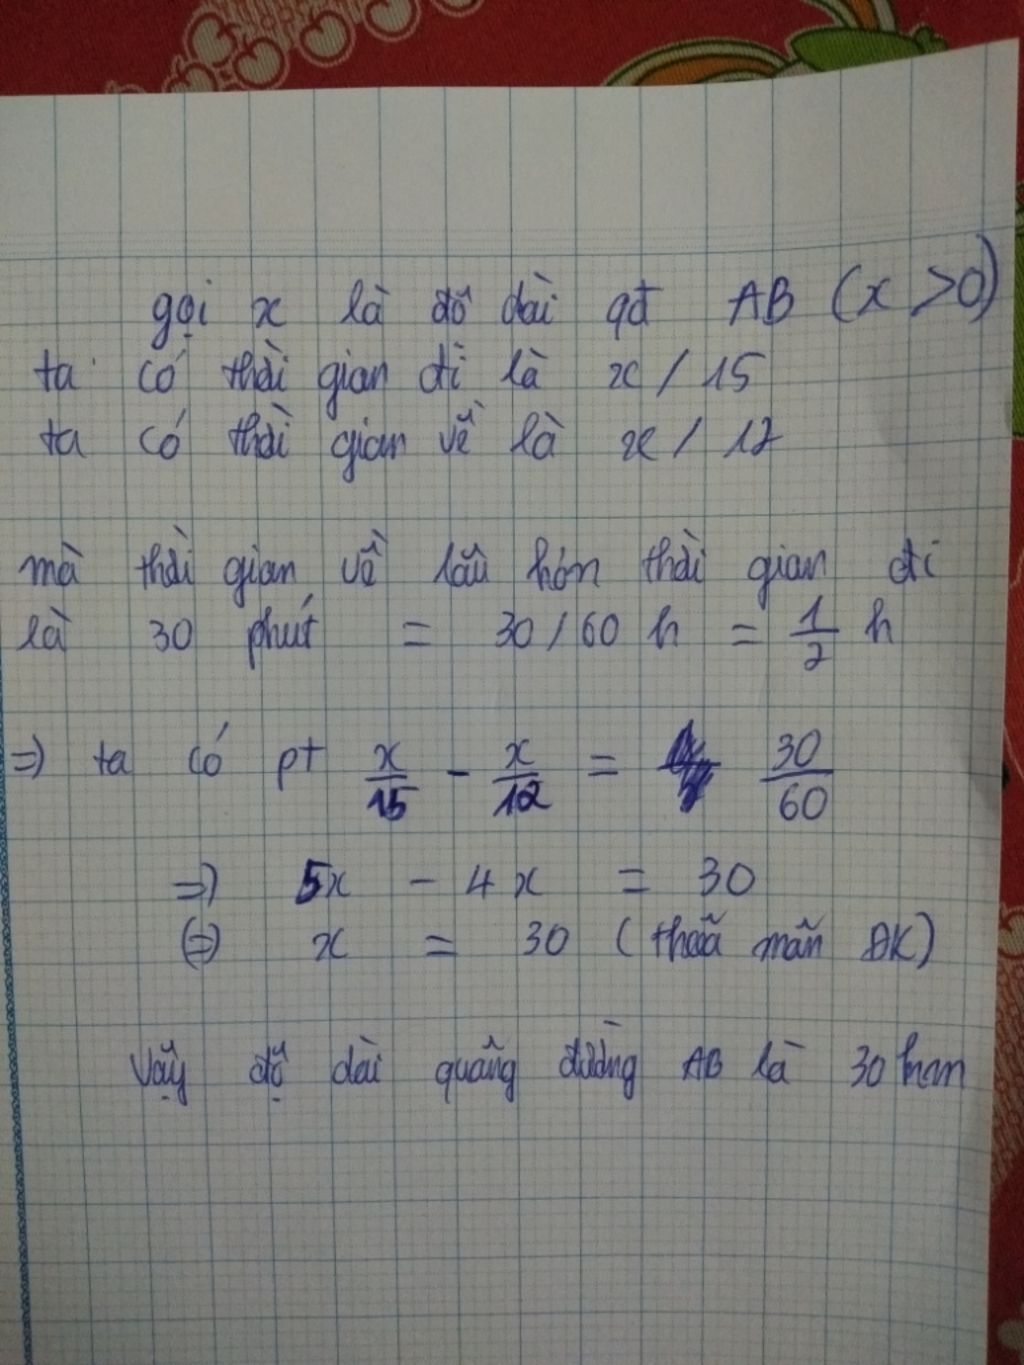 gọi x là độ dài qđ AB (x > 0)
ta có thời gian đi là x / 15
ta có thời gian về là x / 12
mà thời gian về lâu hơn thời gian đi
là 30 phút = 30 / 60 h = 1/2 h
=> ta có pt x/15 - x/12 = 30/60
=> 5x - 4x = 30
(=) x = 30 (thoã mãn ĐK)
Vậy độ dài quãng đường AB là 30 km